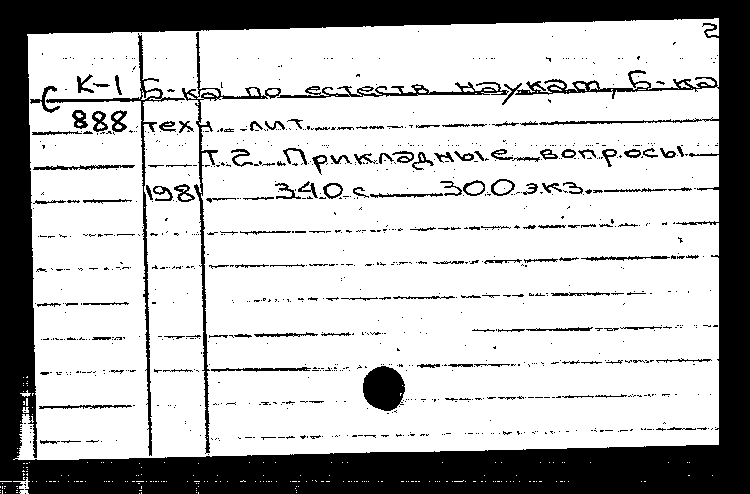 2
С К-1 Б-ка по естеств наукам, Б-ка
888 техн. лит.
Т.2. Прикладные вопросы.
1981 340 с 300 экз.